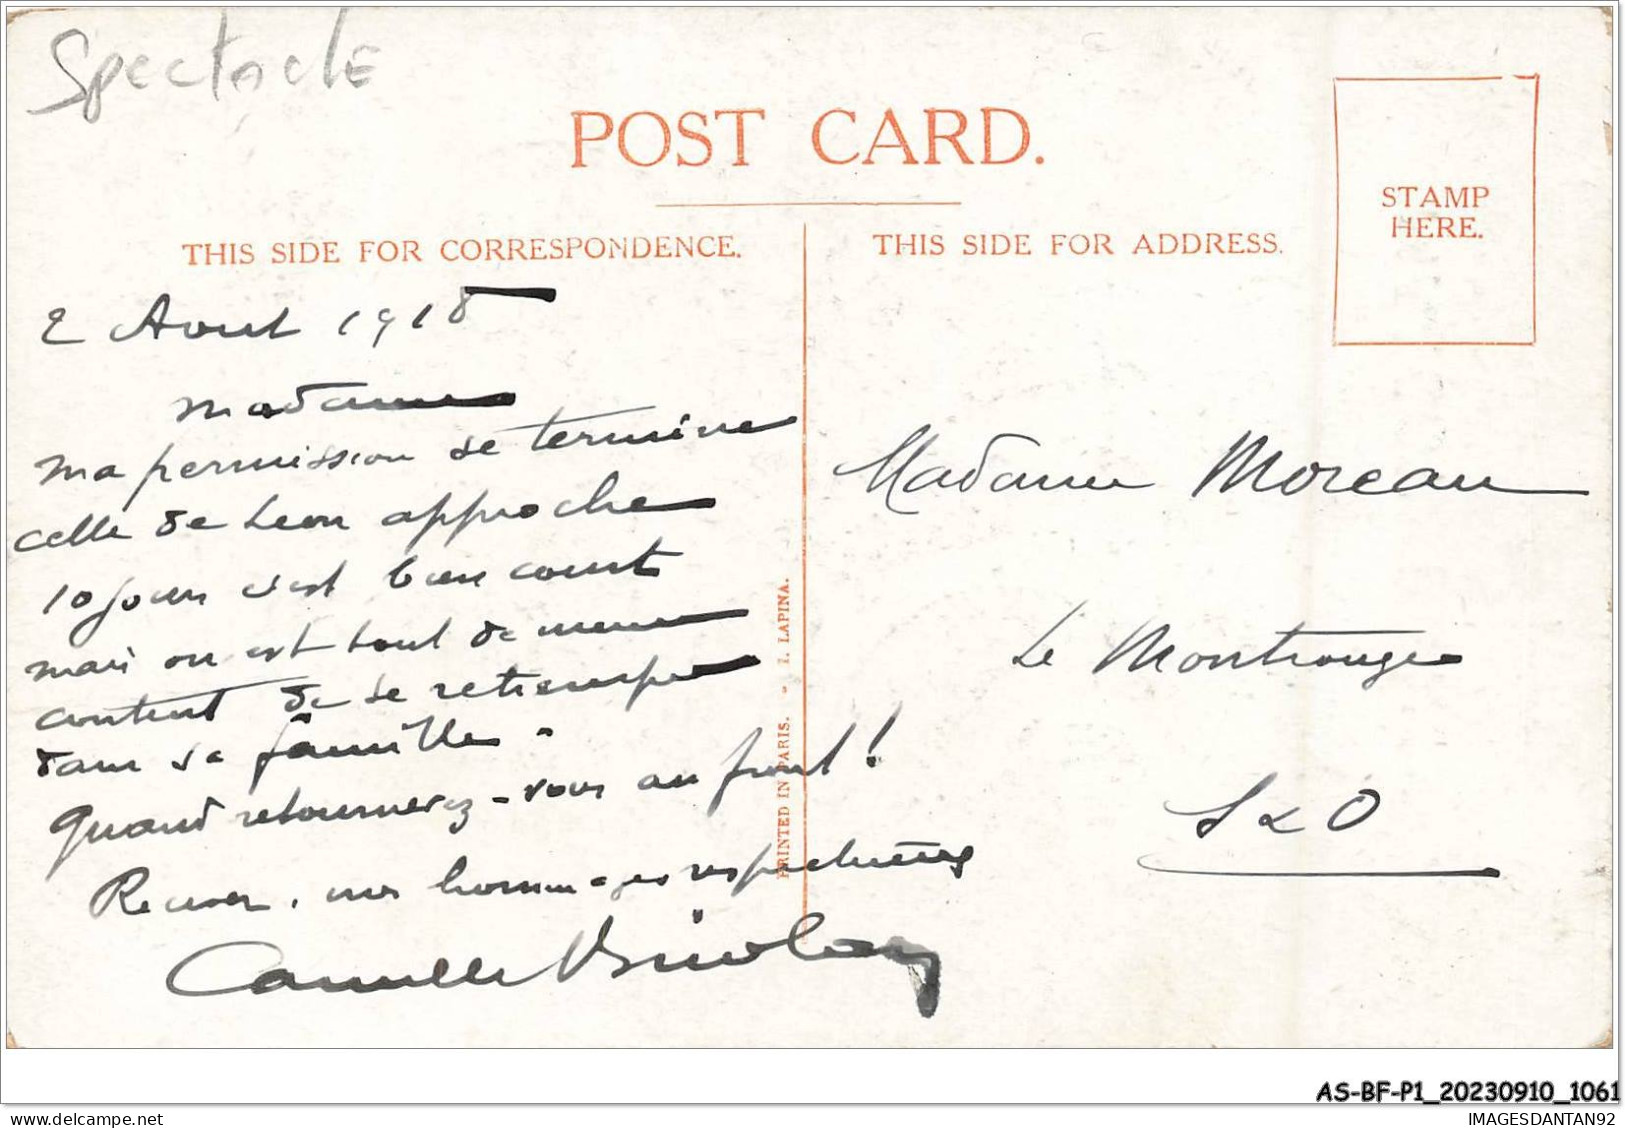 Spectacle
POST CARD.
STAMP
HERE.
THIS SIDE FOR CORRESPONDENCE.
THIS SIDE FOR ADDRESS.
2 Aout 1918
Madame
ma permission se termine
celle de Leon approche
10 jours c'est bien court
mais on est tout de meme
content de se retremper
dans sa famille.
Quand retournerez-vous au front!
Recevez, mes hommages respectueux
Camille
PRINTED IN PARIS. - I. LAPINA.
Madame Moreau
Le Montrouge
S & O
AS-BF-P1_20230910_1061
IMAGESDANTAN92